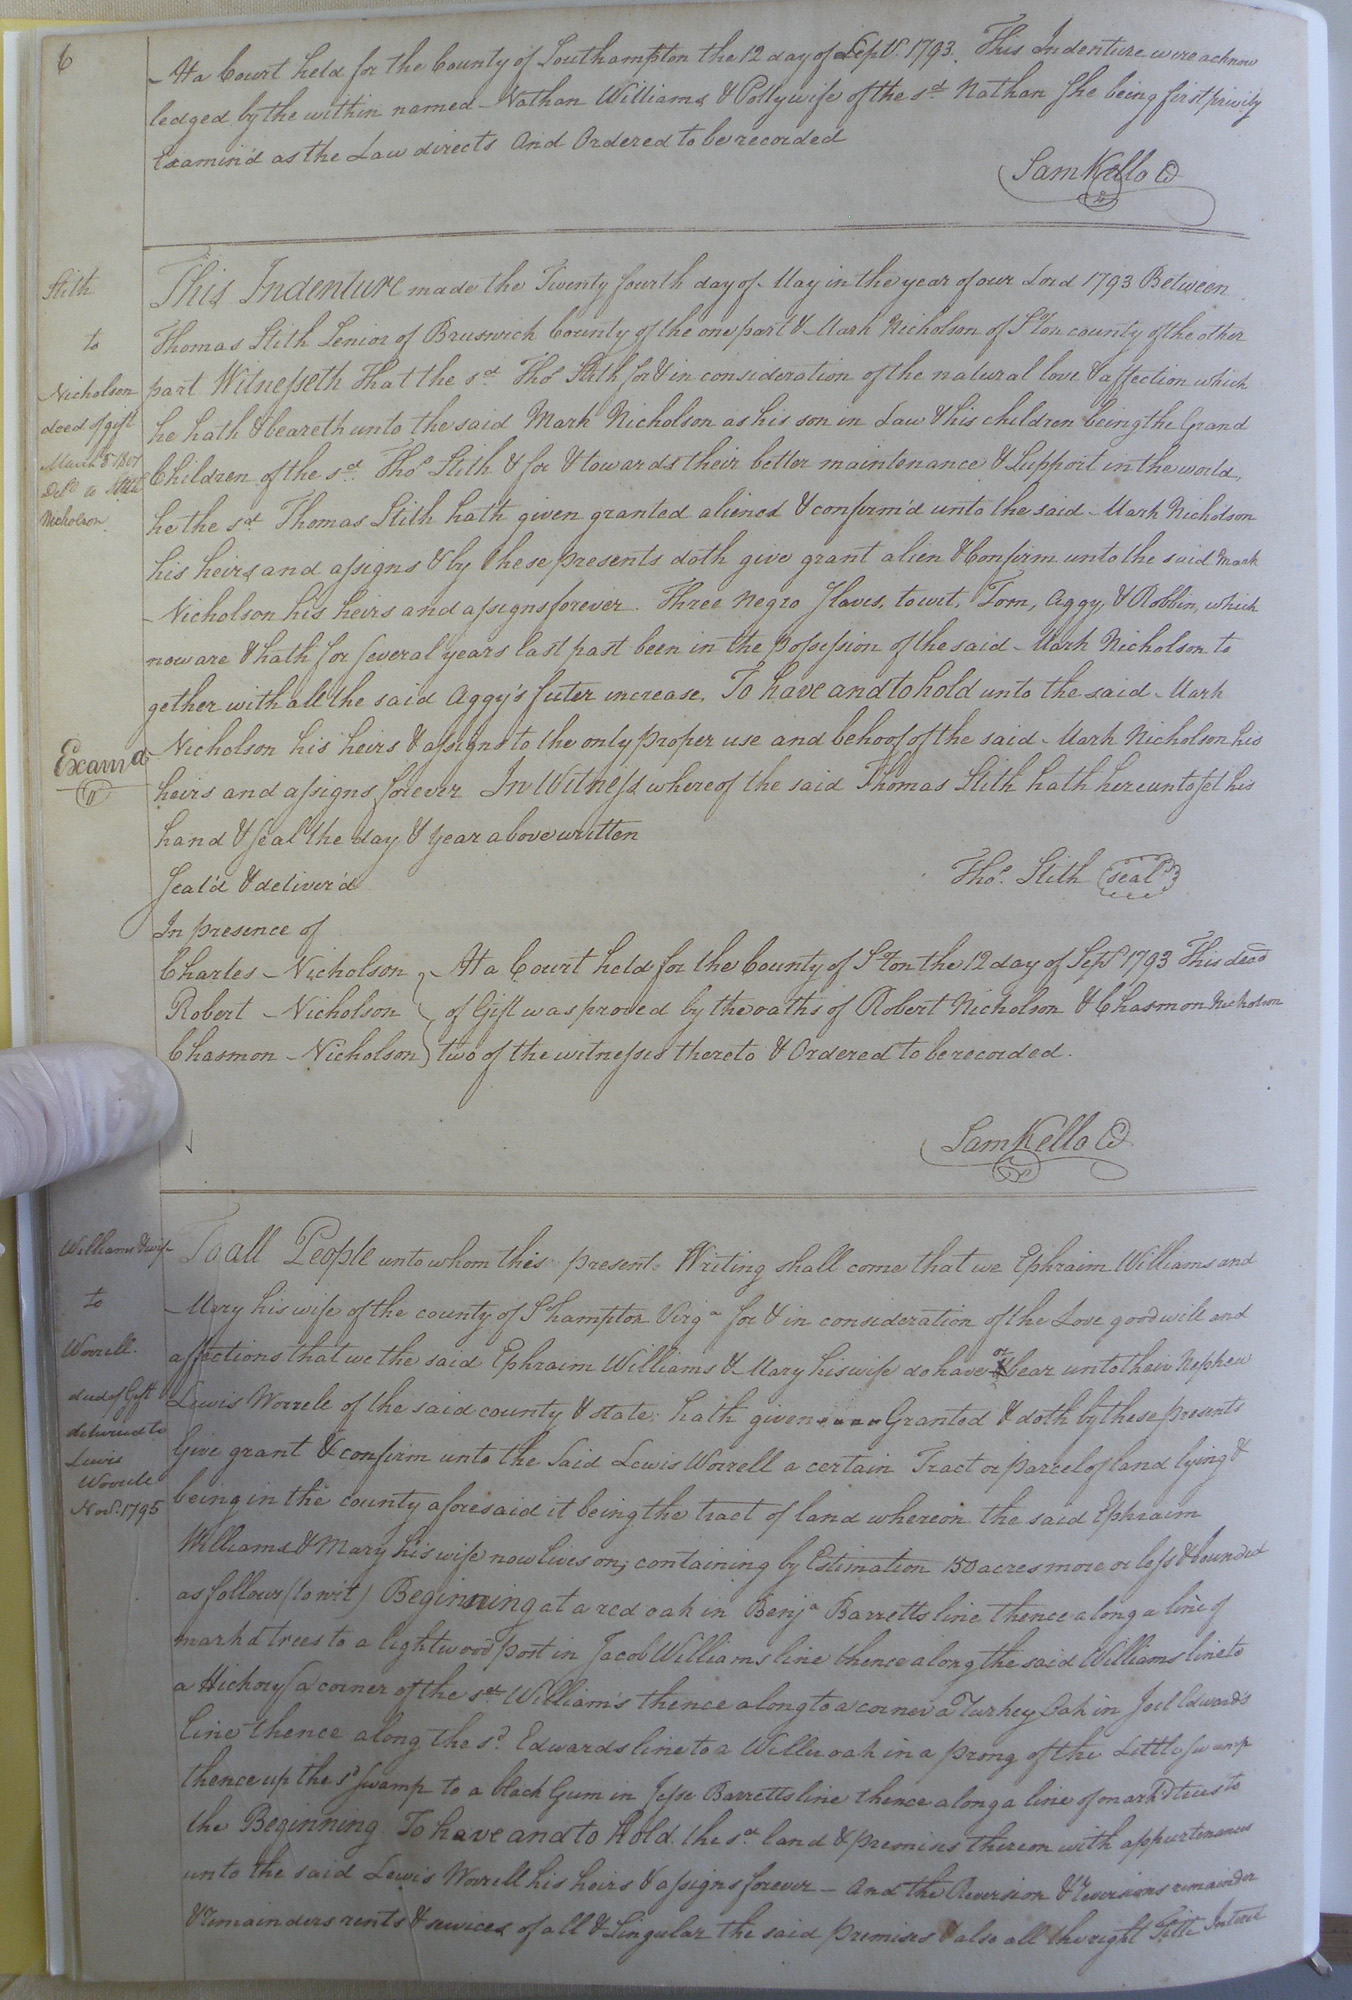 6
At a Court held for the County of Southampton the 12 day of Sept. 1793. This Indenture were acknow
ledged by the within named Nathan Williams & Polly wife of the sd. Nathan She being first privily
Examin'd as the Law directs And Ordered to be recorded
Sam Kello
Stith
to
Nicholson
deed of gift
March 8 1801
Deld. to
Nicholson
This Indenture made the Twenty fourth day of May in the year of our Lord 1793 Between
Thomas Stith Senior of Brunswick County of the one part & Mark Nicholson of S.ton county of the other
part Witnesseth That the sd. Thos. Stith for & in consideration of the natural love & affection which
he hath & beareth unto the said Mark Nicholson as his son in Law & his children being the Grand
Children of the sd. Thos. Stith & for & towards their better maintenance & Support in the world,
he the sd. Thomas Stith hath given granted aliened & confirm'd unto the said Mark Nicholson
his heirs and assigns & by these presents doth give grant alien & Confirm unto the said Mark
Nicholson his heirs and assigns forever. Three Negro Slaves, to wit, Tom, Aggy, & Robbin, which
now are & hath for several years last past been in the possession of the said Mark Nicholson to
gether with all the said Aggy's futer increase, To have and to hold unto the said Mark
Nicholson his heirs & assigns to the only proper use and behoof of the said Mark Nicholson his
heirs and assigns forever In Witness whereof the said Thomas Stith hath hereunto set his
hand & seal the day & year above written
Examd
Seal'd & deliver'd
Thos. Stith seal
In presence of
Charles Nicholson
Robert Nicholson
Chasmon Nicholson
At a Court held for the County of S.ton the 12 day of Sept. 1793 This deed
of Gift was proved by the oaths of Robert Nicholson & Chasmon Nicholson
two of the witnesses thereto & Ordered to be recorded.
Sam Kello
Williams & wife
to
Worrell.
deed of Gift
delivered to
Lewis
Worrele
Novr. 1795
To all People unto whom this present Writing shall come that we Ephraim Williams and
Mary his wife of the county of S.hampton Virga. for & in consideration of the Love good will and
affections that we the said Ephraim Williams & Mary his wife do have or bear unto their Nephew
Lewis Worrele of the said county & state; hath given Granted & doth by these presents
Give grant & confirm unto the Said Lewis Worrell a certain Tract or parcel of land lying &
being in the county aforesaid it being the tract of land whereon the said Ephraim
Williams & Mary his wife now lives on, containing by Estimation 150 acres more or less & bounded
as follows (to wit) Beginning at a red oak in Benja. Barretts line thence along a line of
markd trees to a lightwood post in Jacob Williams line thence along the said Williams line to
a Hickory a corner of the sd. William's thence along to a corner a Turkey Oak in Joel Edward's
line thence along the sd. Edwards line to a Willer oak in a prong of the Little swamp
thence up the sd swamp to a black Gum in Jesse Barretts line thence along a line of markd trees to
the Beginning To have and to hold the sd. land & premises thereon with appurtenances
unto the said Lewis Worrell his heirs & assigns forever - And the Reversion & Reversions remainder
& remainders rents & services of all & Singular the said premises & also all the right Title Interest